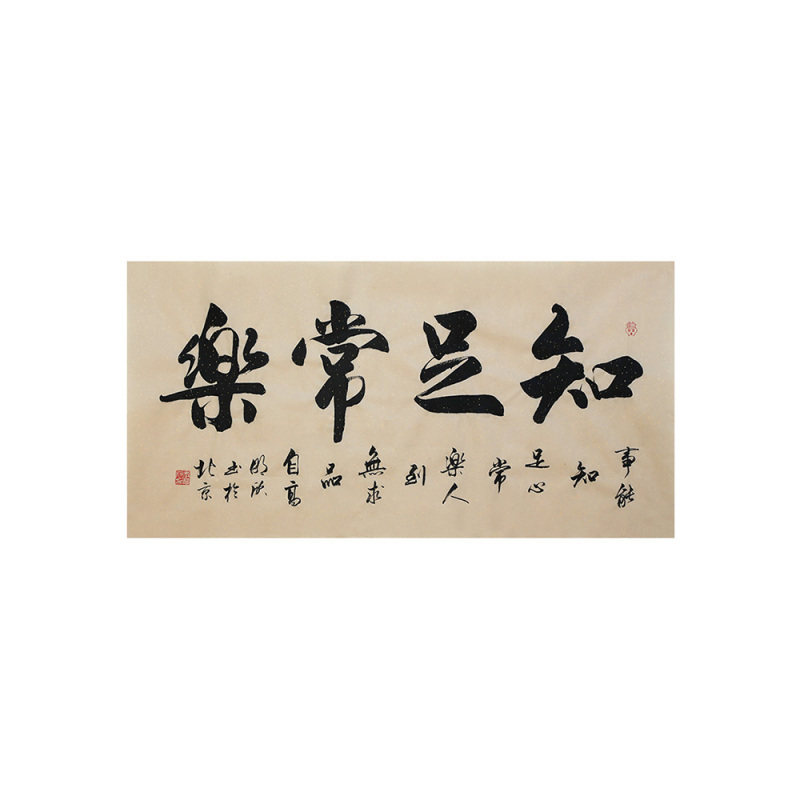 知足常樂
事能知足心常樂人到無求品自高
書於北京